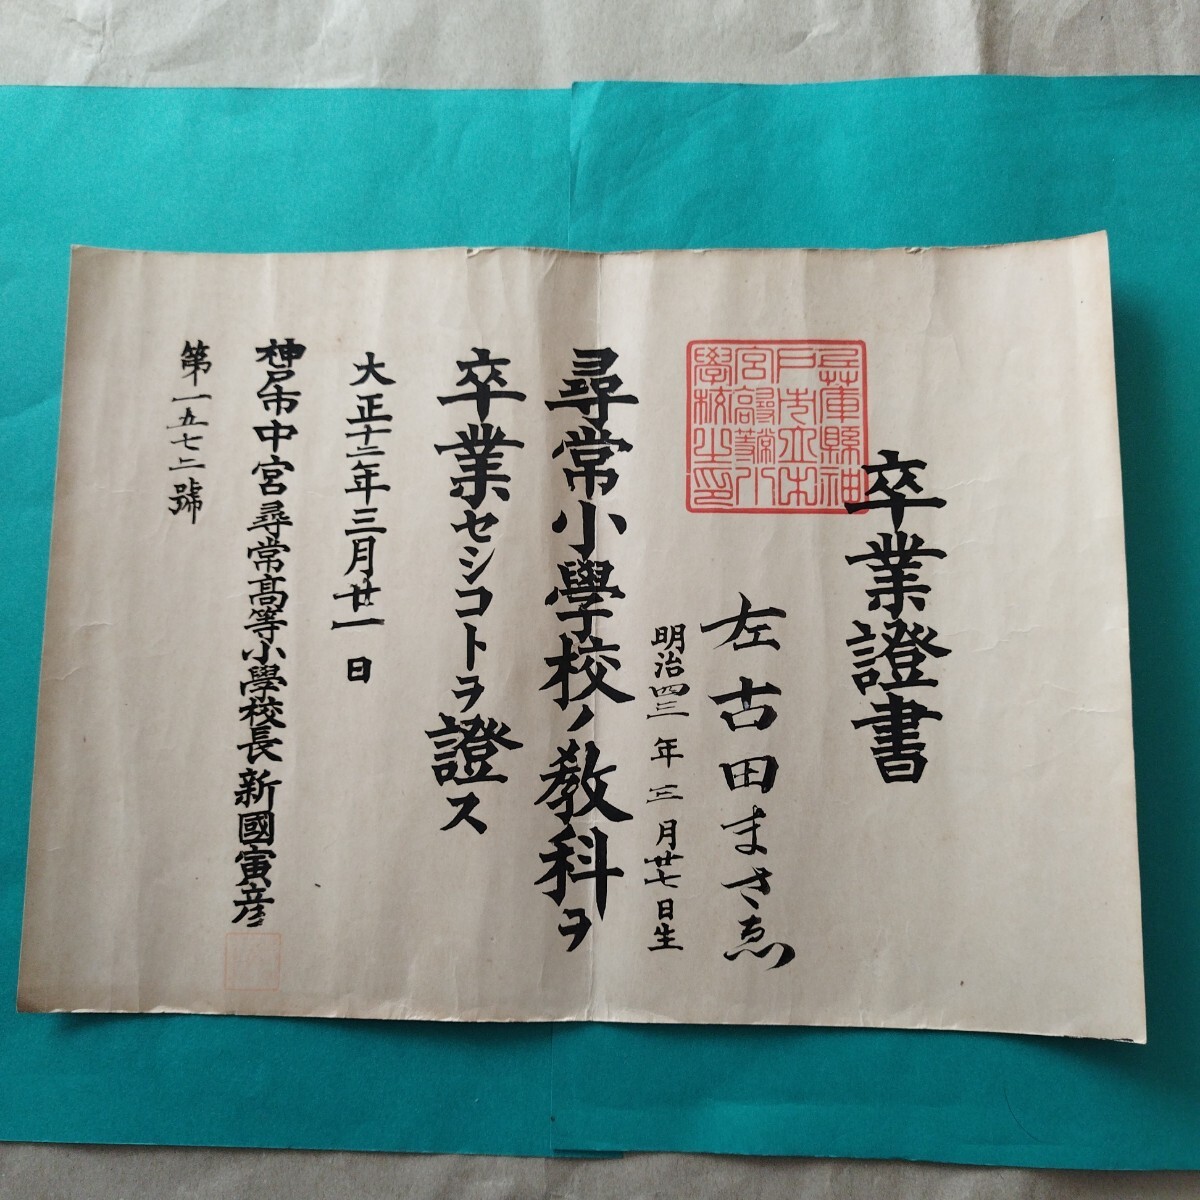 卒業證書
兵庫縣神
戸市立中
宮尋常小
學校之印
左古田まさゑ
明治四三年三月廿七日生
尋常小學校ノ教科ヲ
卒業セシコトヲ證ス
大正十二年三月廿一日
神戸市中宮尋常高等小學校長新國寅彦
第一五七二號